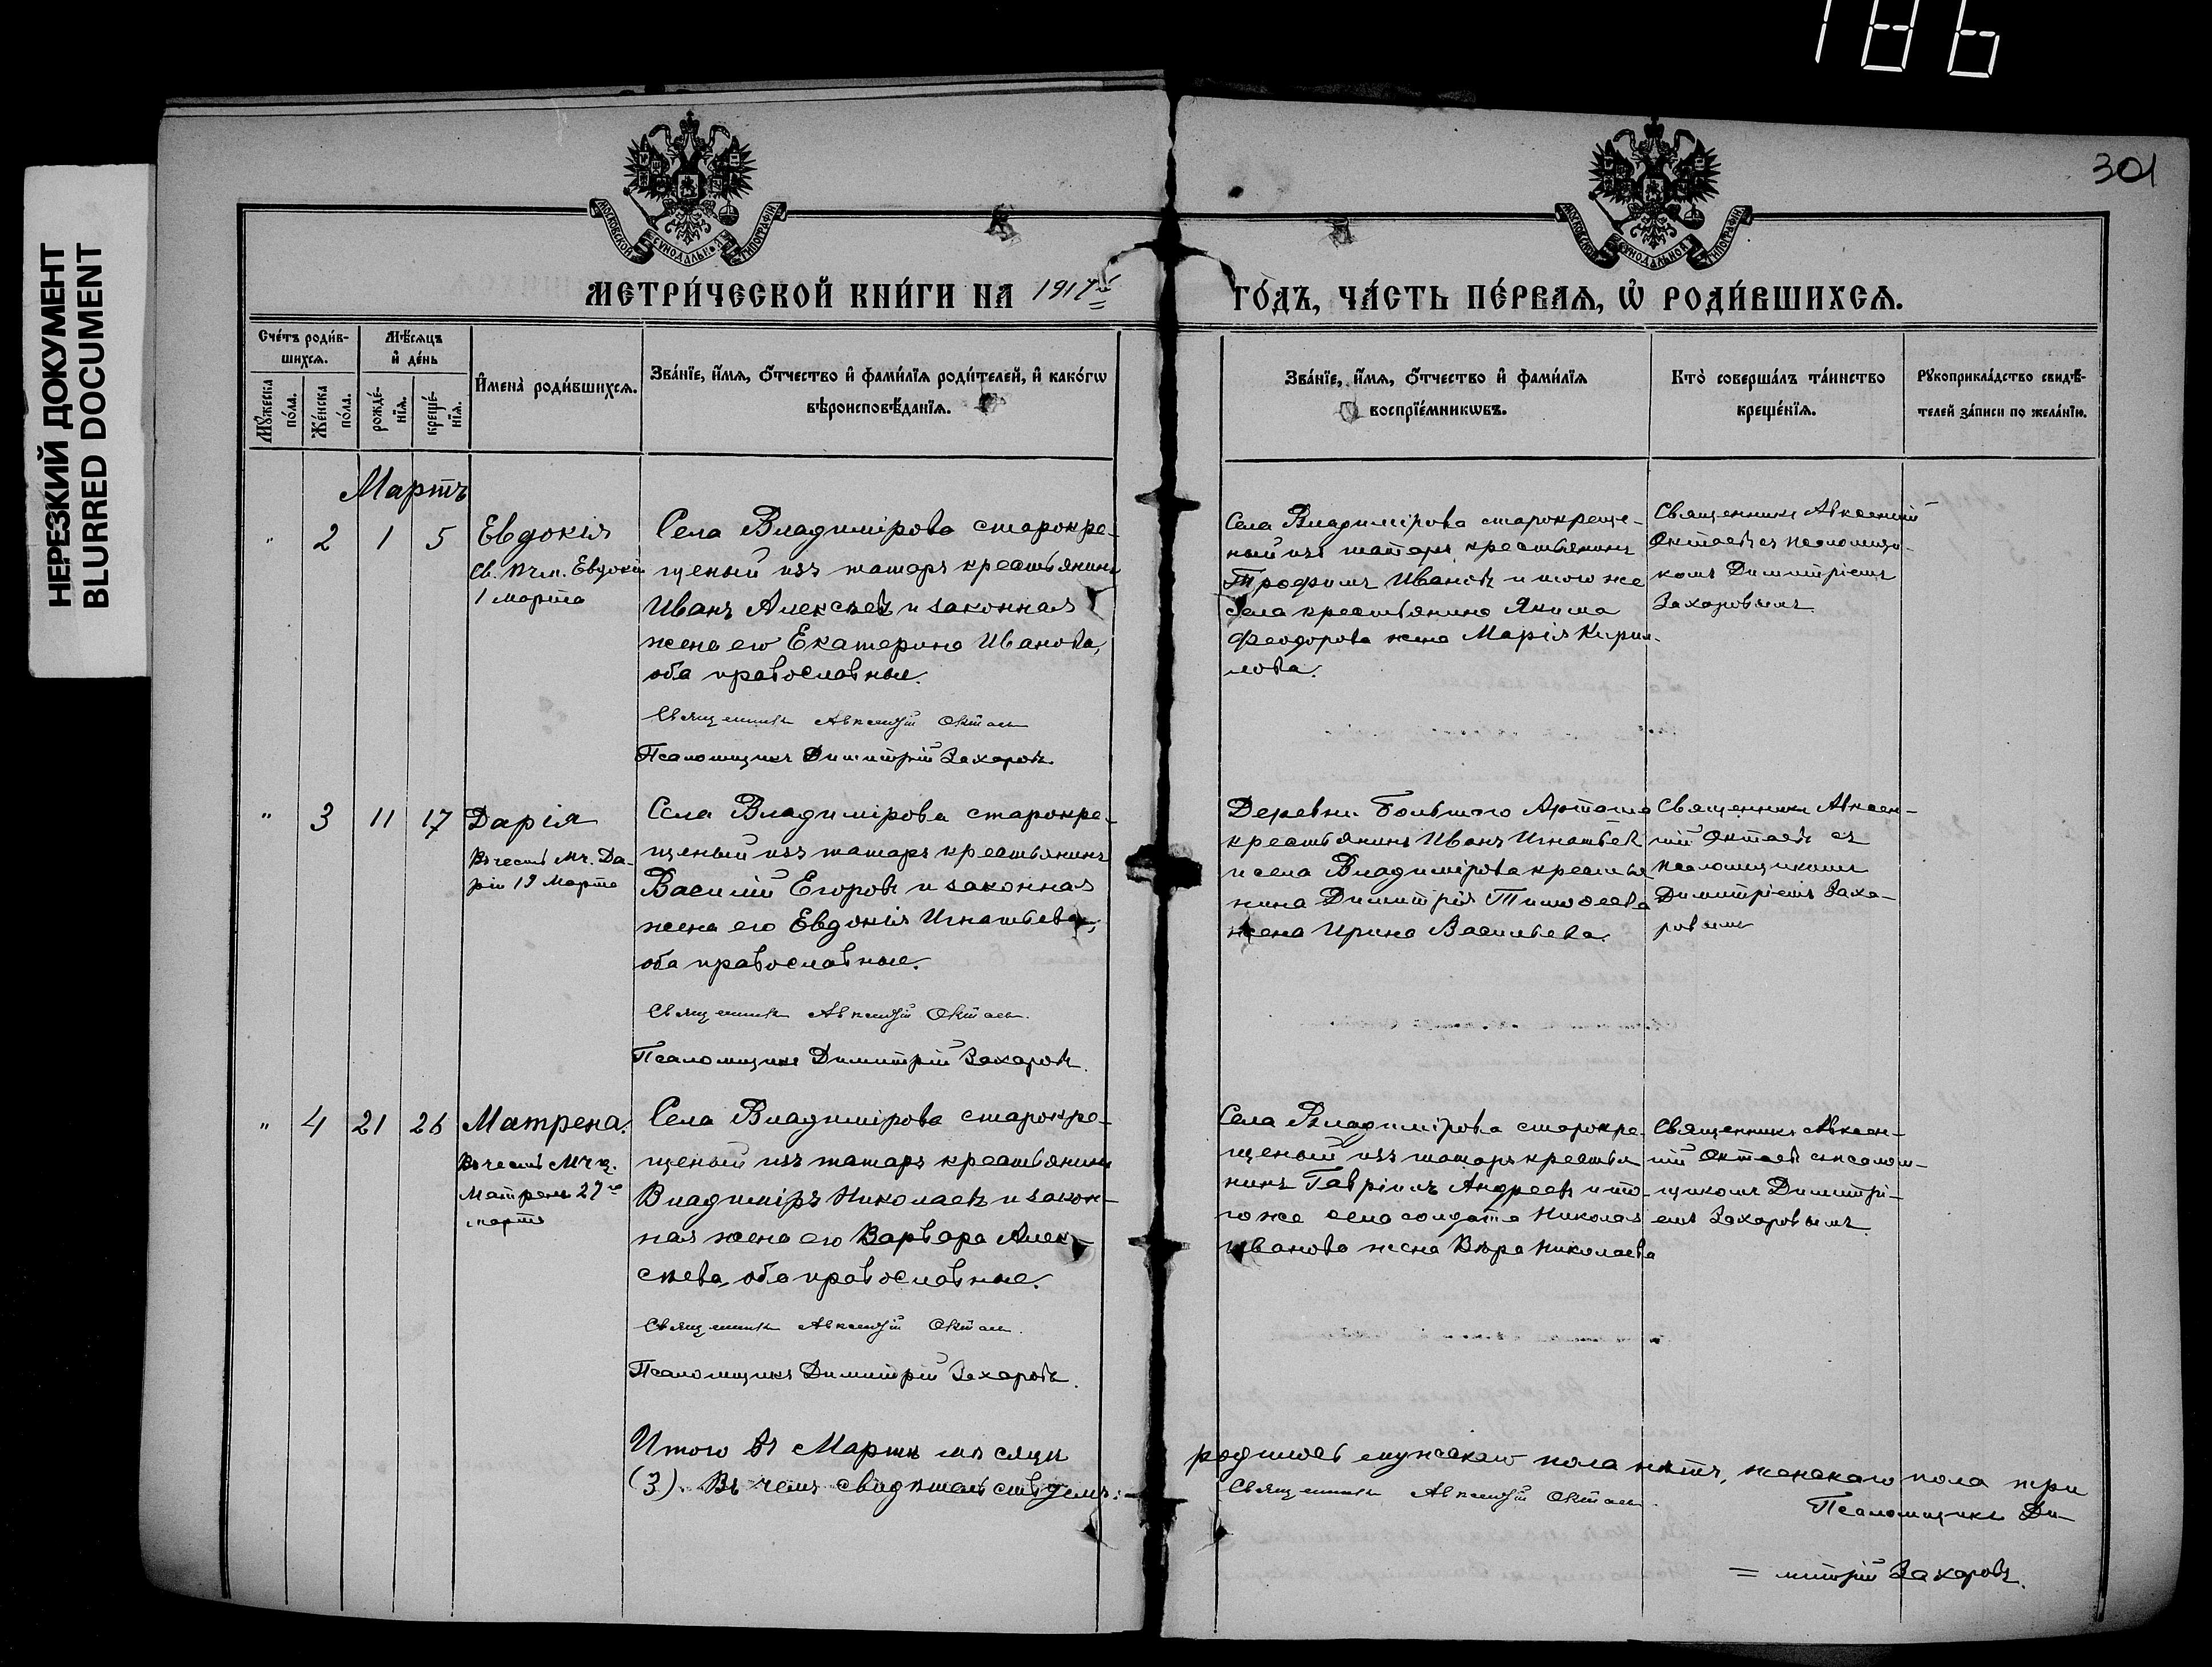 186
301
НЕРЕЗКИЙ ДОКУМЕНТ
BLURRED DOCUMENT
МОСКОВСКОЙ СѴНОДАЛЬНОЙ ТИПОГРАФІИ
МОСКОВСКОЙ СѴНОДАЛЬНОЙ ТИПОГРАФІИ
МЕТРИ́ЧЕСКОЙ КНИ́ГИ НА 1917й
ГО́ДЪ, ЧА́СТЬ ПЕ́РВАЯ, Ѡ҆ РОДИ́ВШИХСЯ.
Сче́тъ роди́в-
шихся.
Мѣ́сяцъ
и҆ де́нь
Мꙋ́жеска по́ла.
Же́нска по́ла.
рожде́-
нїя.
креще́-
нїя.
И҆мена̀ роди́вшихся.
Зва́нїе, и҆́мя, ѻ҆́тчество и҆ фами́лїя роди́телей, и҆ како́гѡ
вѣроисповѣ́данїя.
Зва́нїе, и҆́мя, ѻ҆́тчество и҆ фами́лїя
воспрїе́мникѡвъ.
Кто̀ соверша́лъ та́инство
креще́нїя.
Рꙋкоприкла́дство свидѣ́-
телей за́писи по жела́нїю.
Мартъ
" 2 1 5 Евдокія
Св. Пчм. Евдокіи
1 марта
Села Владимірова старокре-
щеный изъ татаръ крестьянинъ
Иванъ Алексѣевъ и законная
жена его Екатерина Иванова,
оба православные.
Священникъ Авксентій Октаевъ
Псаломщикъ Димитрій Захаровъ.
Села Владимірова старокреще-
ный изъ татаръ крестьянинъ
Трофимъ Ивановъ и того же
села крестьянина Якима
Феодорова жена Марія Кирил-
лова.
Священникъ Авксентій
Октаевъ съ псаломщи-
комъ Димитріемъ
Захаровымъ
" 3 11 17 Дарія
Въ честь Мч. Да-
ріи 19 Марта
Села Владимірова старокре-
щеный изъ татаръ крестьянинъ
Василій Егоровъ и законная
жена его Евдокія Игнатьева,
оба православные.
Священникъ Авксентій Октаевъ.
Псаломщикъ Димитрій Захаровъ.
Деревни Большого Арташа
крестьянинъ Иванъ Игнатьевъ
и села Владимірова крестья
нина Димитрія Тимоѳеева
жена Ирина Васильева.
Священникъ Авксен-
тій Октаевъ съ
псаломщикомъ
Димитріемъ Заха-
ровымъ
" 4 21 26 Матрена.
Въ честь Мчц.
Матрены 27го
марта
Села Владимірова старокре-
щеный изъ татаръ крестьянинъ
Владиміръ Николаевъ и закон-
ная жена его Варвара Алек-
сѣева, оба православные.
Священникъ Авксентій Октаевъ.
Псаломщикъ Димитрій Захаровъ.
Села Владимірова старокре-
щеный изъ татаръ крестья
нинъ Гавріилъ Андреевъ и то-
го же села солдата Николая
Иванова жена Вѣра Николаева
Священникъ Авксен-
тій Октаевъ съ псалом-
щикомъ Димитрі-
емъ Захаровымъ
Итого въ Мартѣ мѣсяцѣ родилось мужскаго пола нѣтъ, женскаго пола три
(3). Въ чемъ свидѣтельствуемъ: Священникъ Авксентій Октаевъ.
Псаломщикъ Ди-
= митрій Захаровъ.